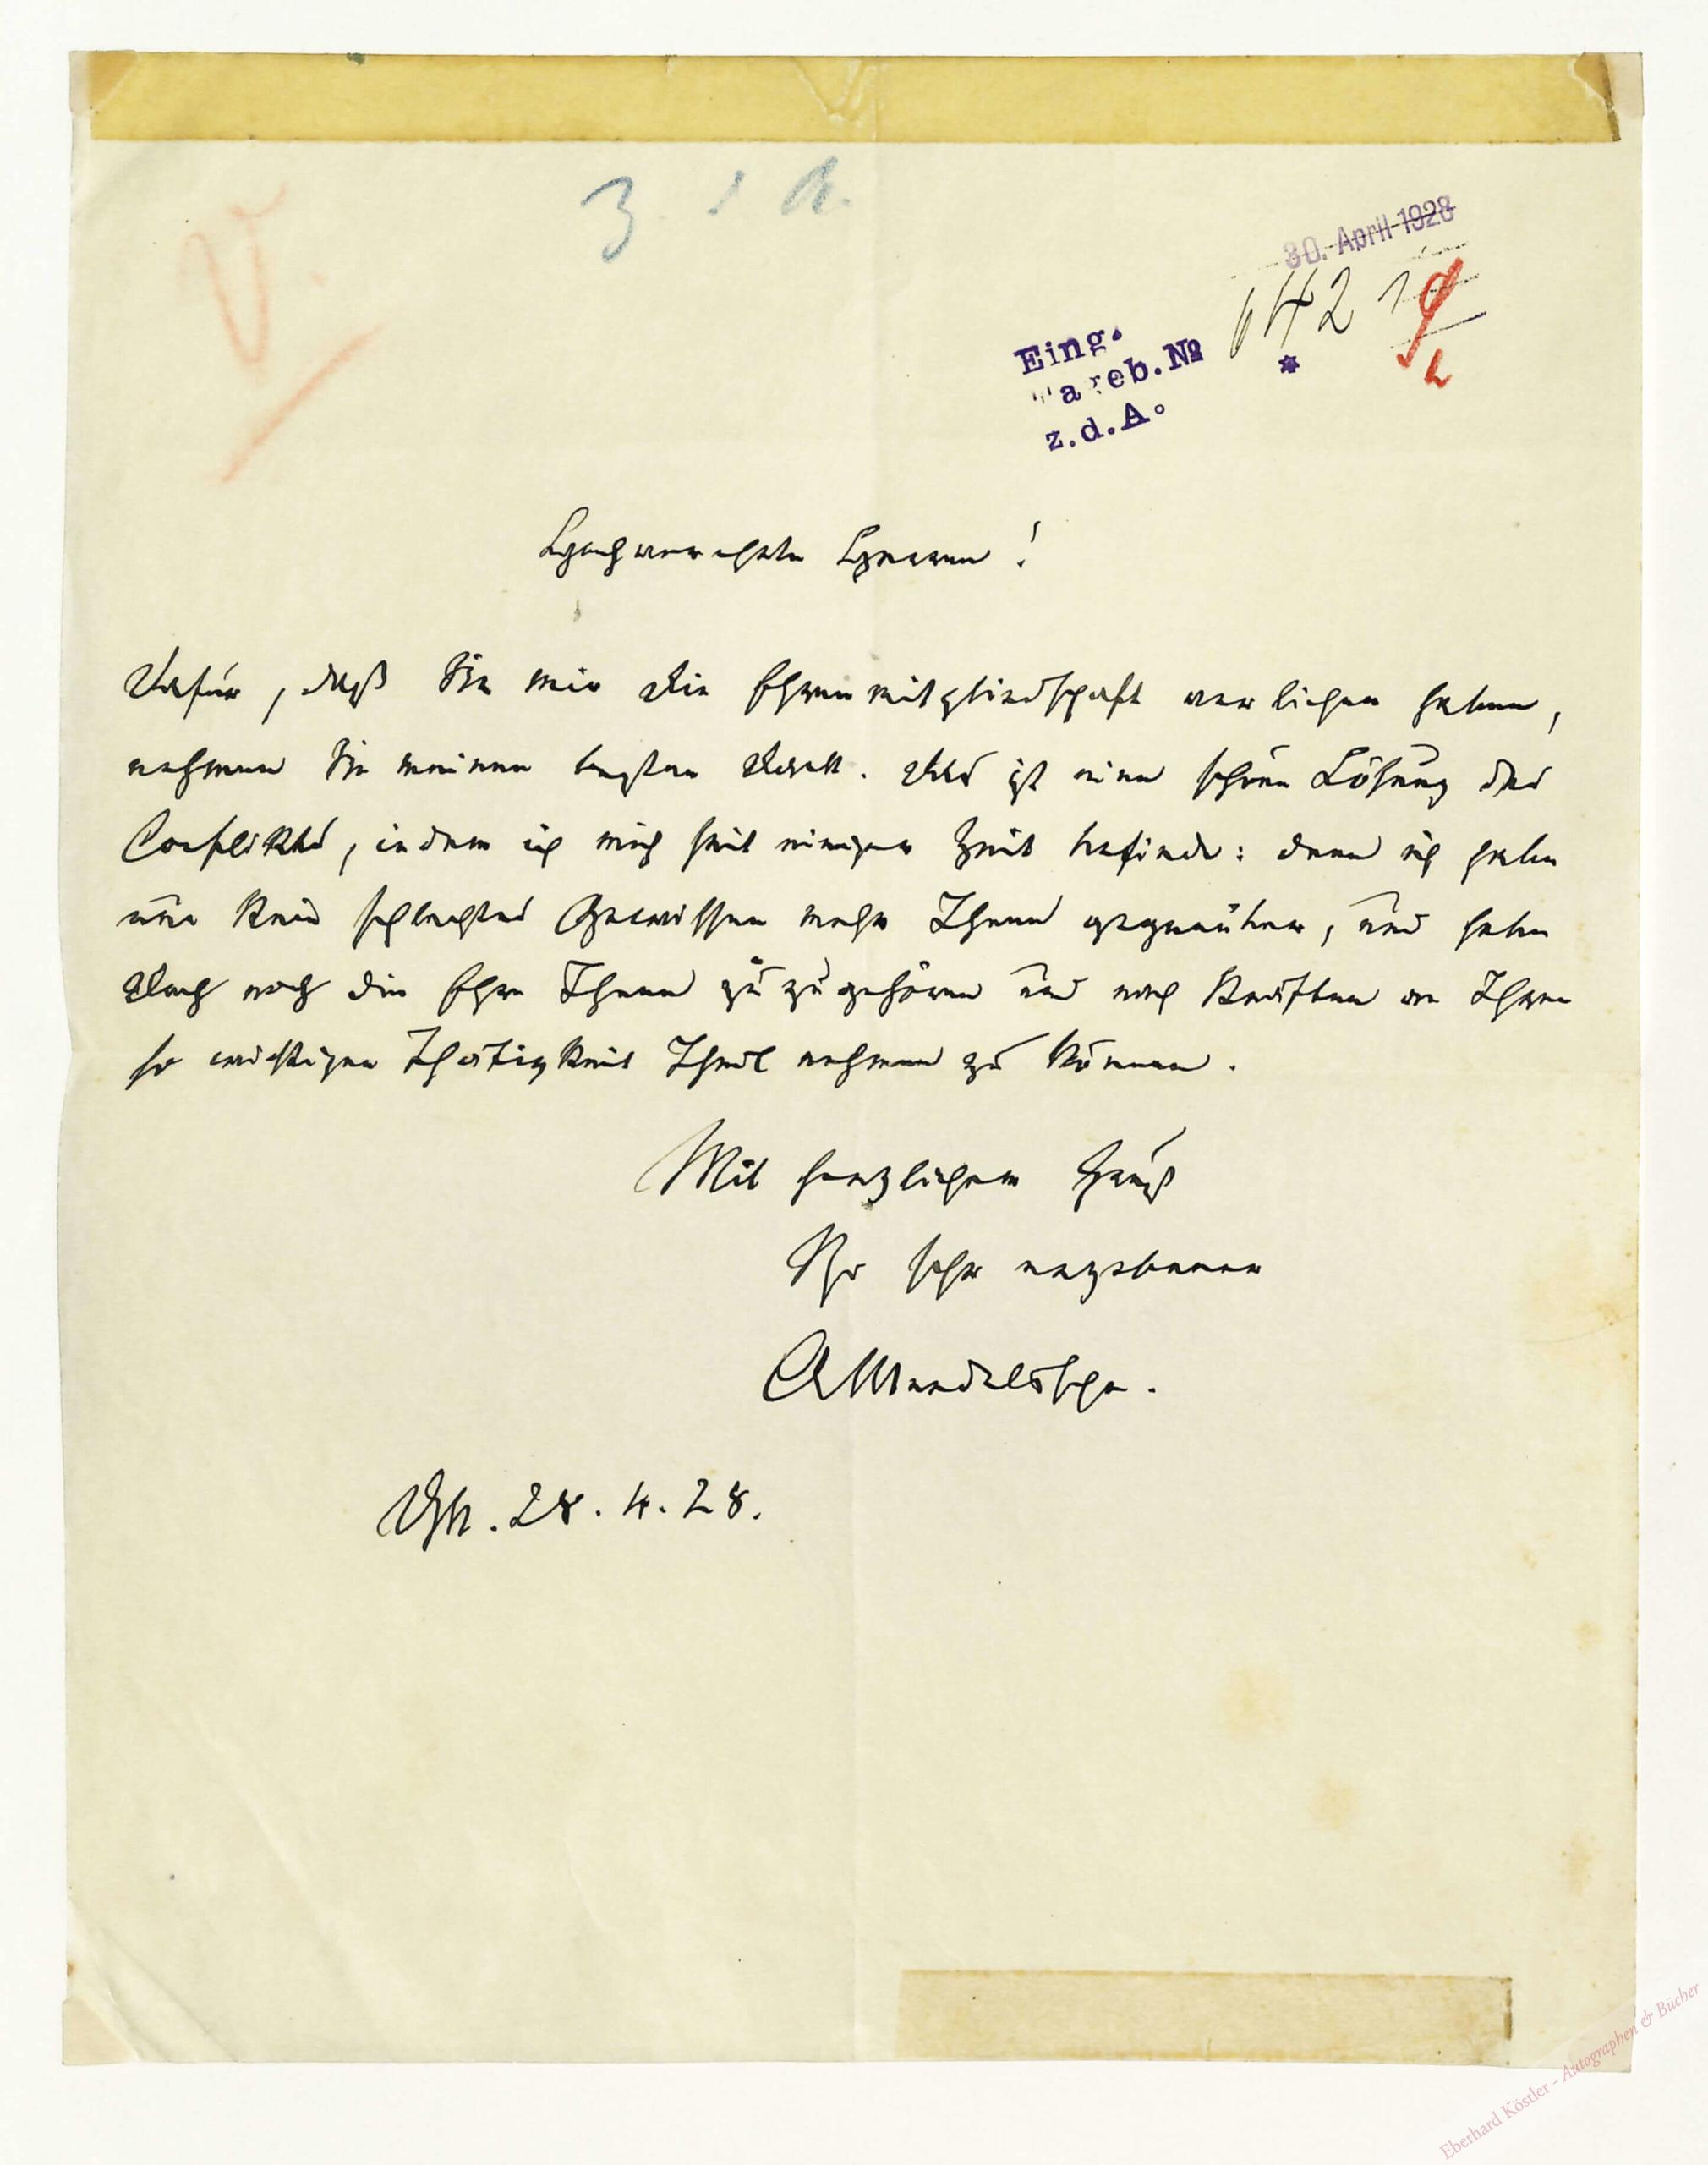 3. d. A.
30. April 1928
Eing.
Tageb. № 6421
z.d.A.
Hochverehrte Herren!
Dafür, daß Sie mir die Ehrenmitgliedschaft verliehen haben,
nehmen Sie meinen besten Dank. Das ist eine schöne Lösung des
Conflikts, indem ich mich seit einiger Zeit befinde: denn ich habe
nun kein schlechtes Gewissen mehr Ihnen gegenüber, und habe
doch noch die Ehre Ihnen zuzugehören und nach Kräften an Ihrer
so wichtigen Thätigkeit Theil nehmen zu können.
Mit herzlichem Gruß
Ihr sehr ergebener
AMendelssohn.
28.4.28.
Eberhard Köstler - Autographen & Bücher